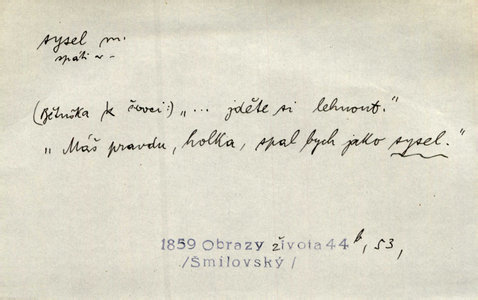 sysel m.
spáti ~ -
(Bětuška k ševci:) „... jděte si lehnout."
„Máš pravdu, holka, spal bych jako sysel."
1859 Obrazy života 44b, 53,
/Šmilovský/